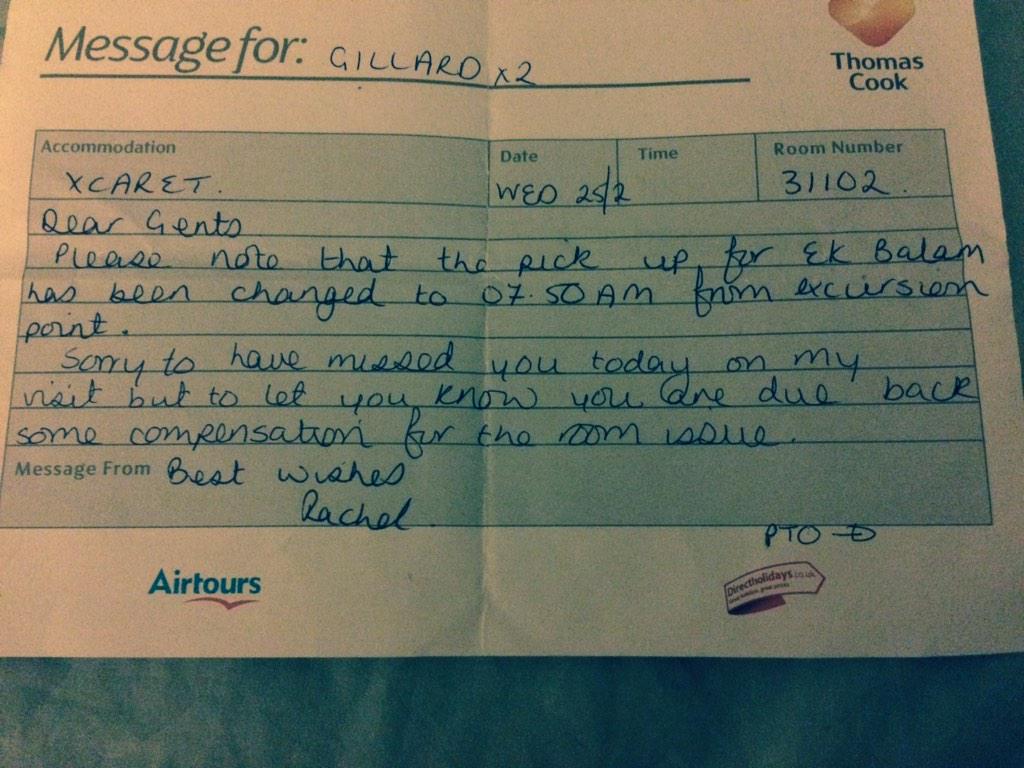 Message for: GILLARD x2
Thomas
Cook
Accommodation Date Time Room Number
XCARET. WED 25/2 31102.
Dear Gents
Please note that the pick up for Ek Balam
has been changed to 07.50AM from excursion
point.
Sorry to have missed you today on my
visit but to let you know you are due back
some compensation for the room issue.
Message From Best wishes
Rachel.
PTO →
Airtours
Directholidays.co.uk